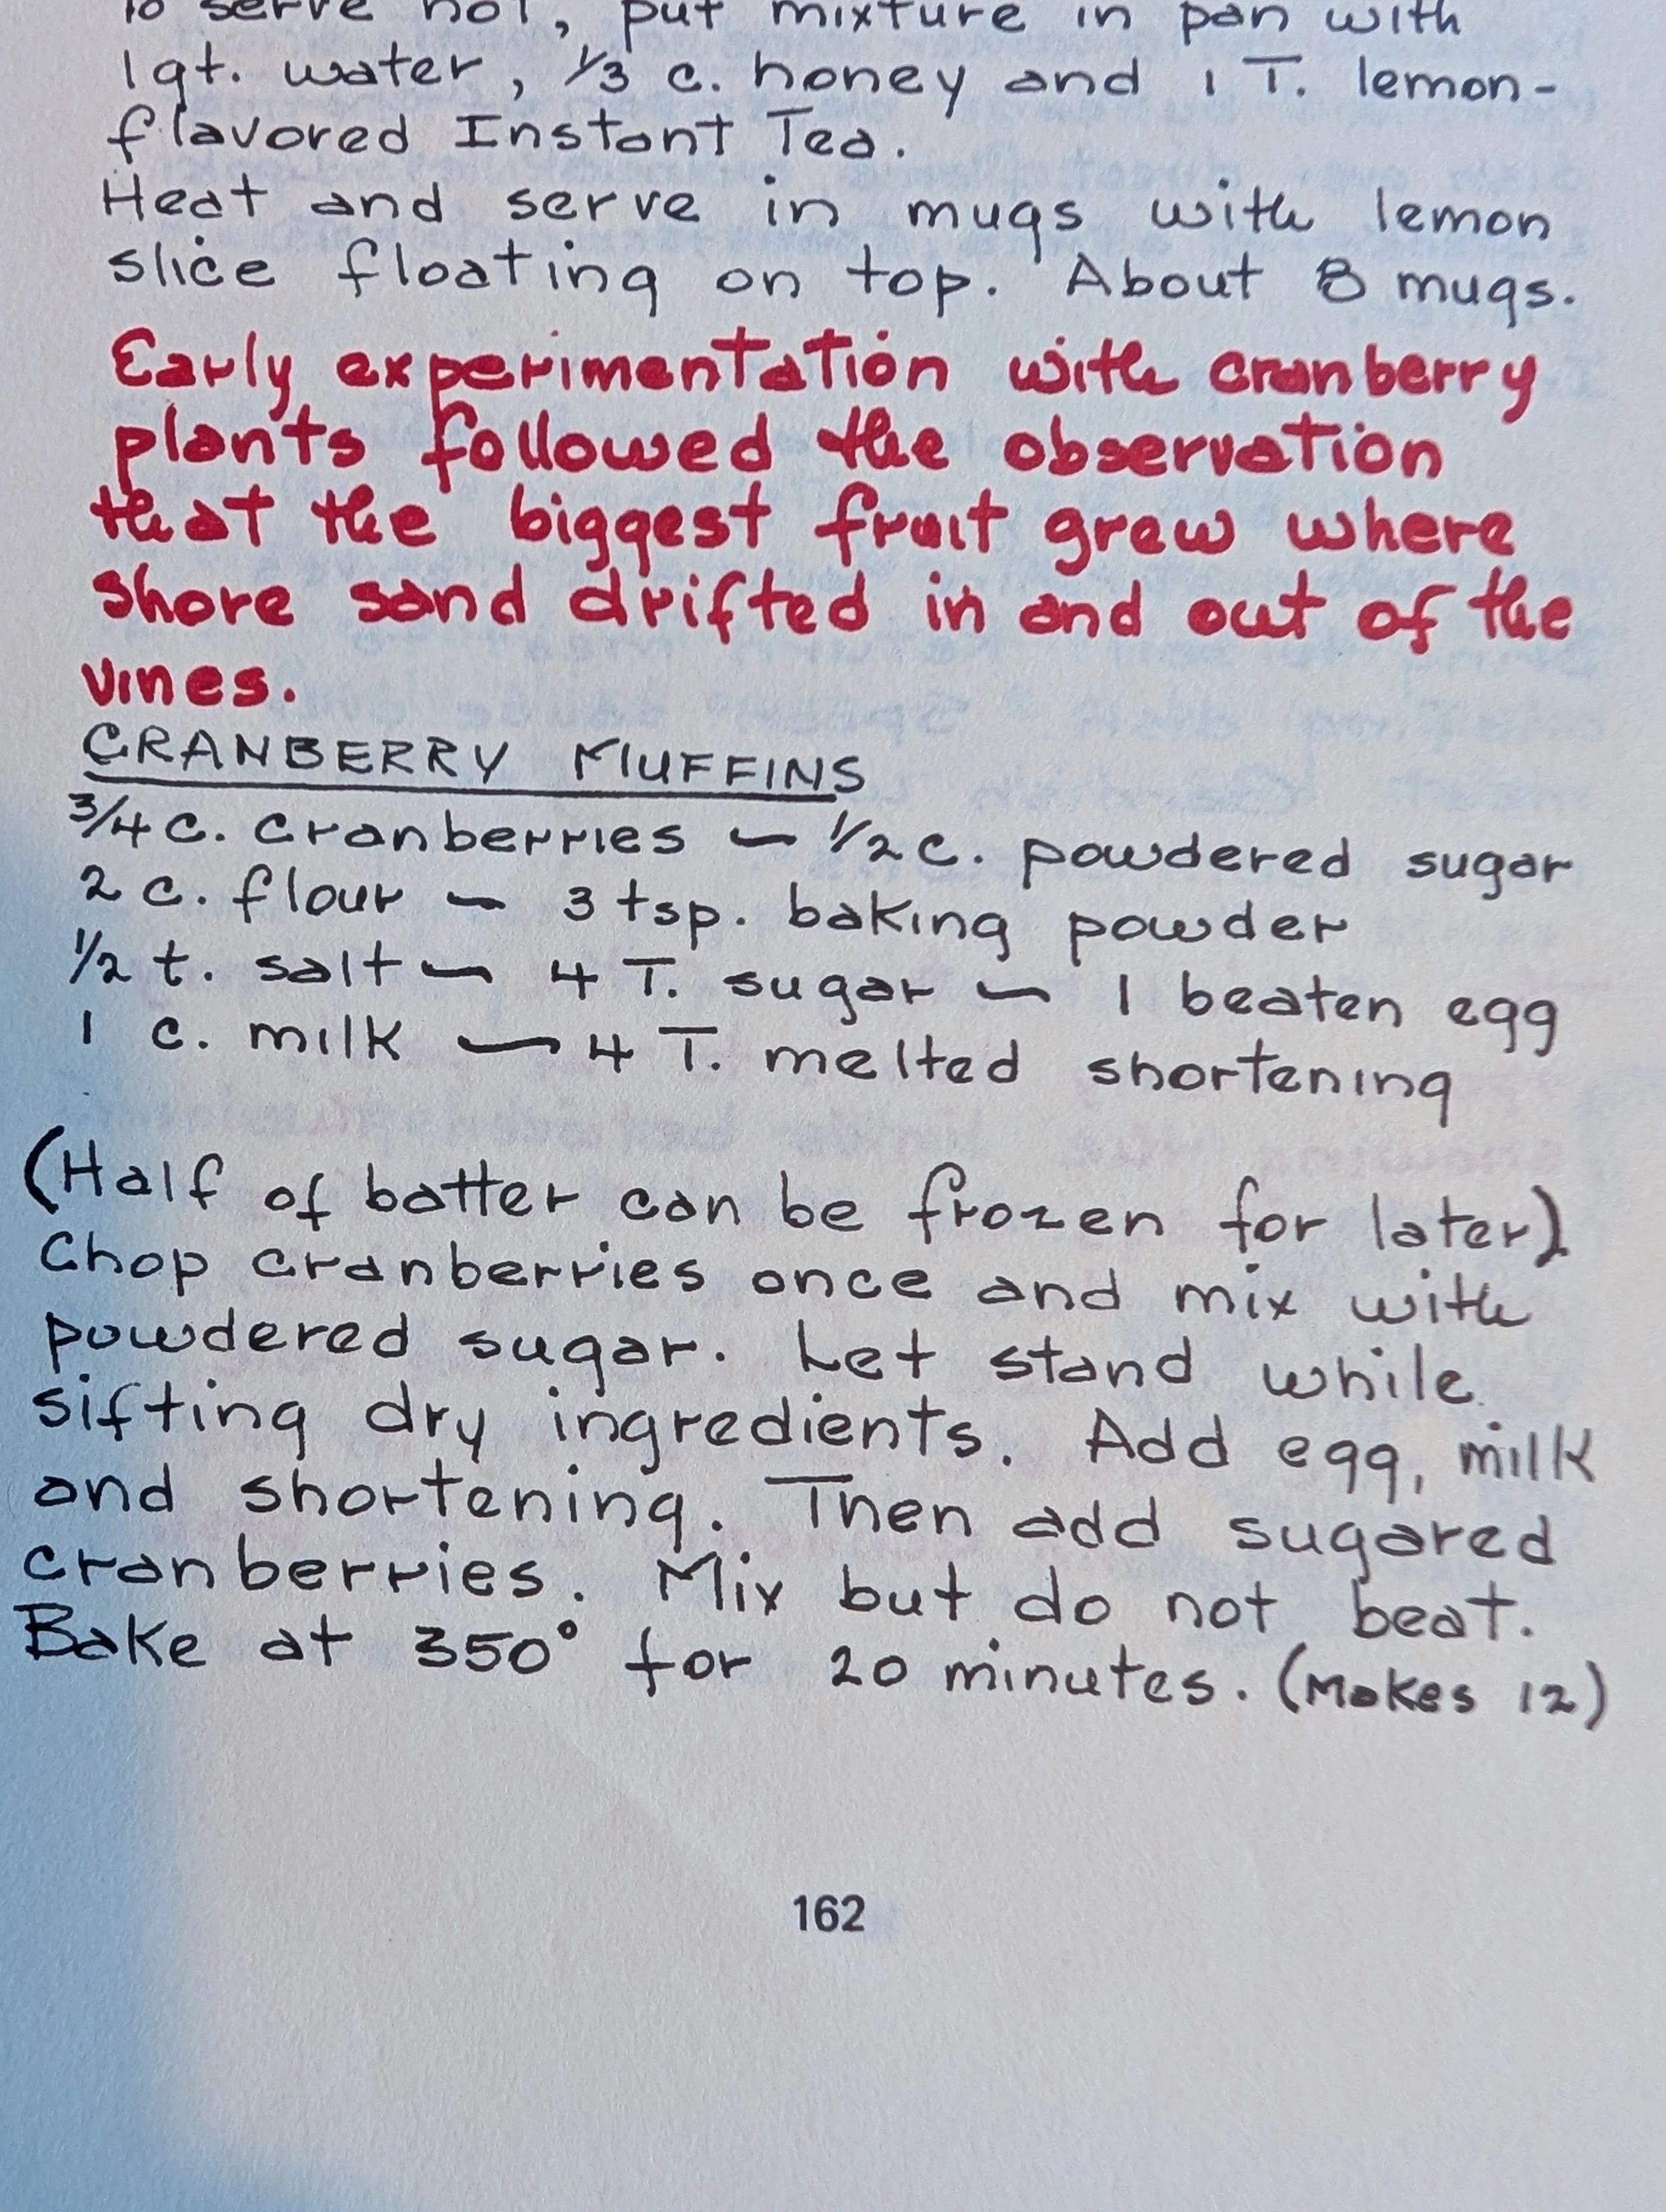 To serve hot, put mixture in pan with
1 qt. water, 1/3 c. honey and 1 T. lemon-
flavored Instant Tea.
Heat and serve in mugs with lemon
slice floating on top. About 8 mugs.
Early experimentation with cranberry
plants followed the observation
that the biggest fruit grew where
shore sand drifted in and out of the
vines.
CRANBERRY MUFFINS
3/4 c. cranberries — 1/2 c. powdered sugar
2 c. flour — 3 tsp. baking powder
1/2 t. salt — 4 T. sugar — 1 beaten egg
1 c. milk — 4 T. melted shortening
(Half of batter can be frozen for later)
Chop cranberries once and mix with
powdered sugar. Let stand while
sifting dry ingredients. Add egg, milk
and shortening. Then add sugared
cranberries. Mix but do not beat.
Bake at 350° for 20 minutes. (Makes 12)
162